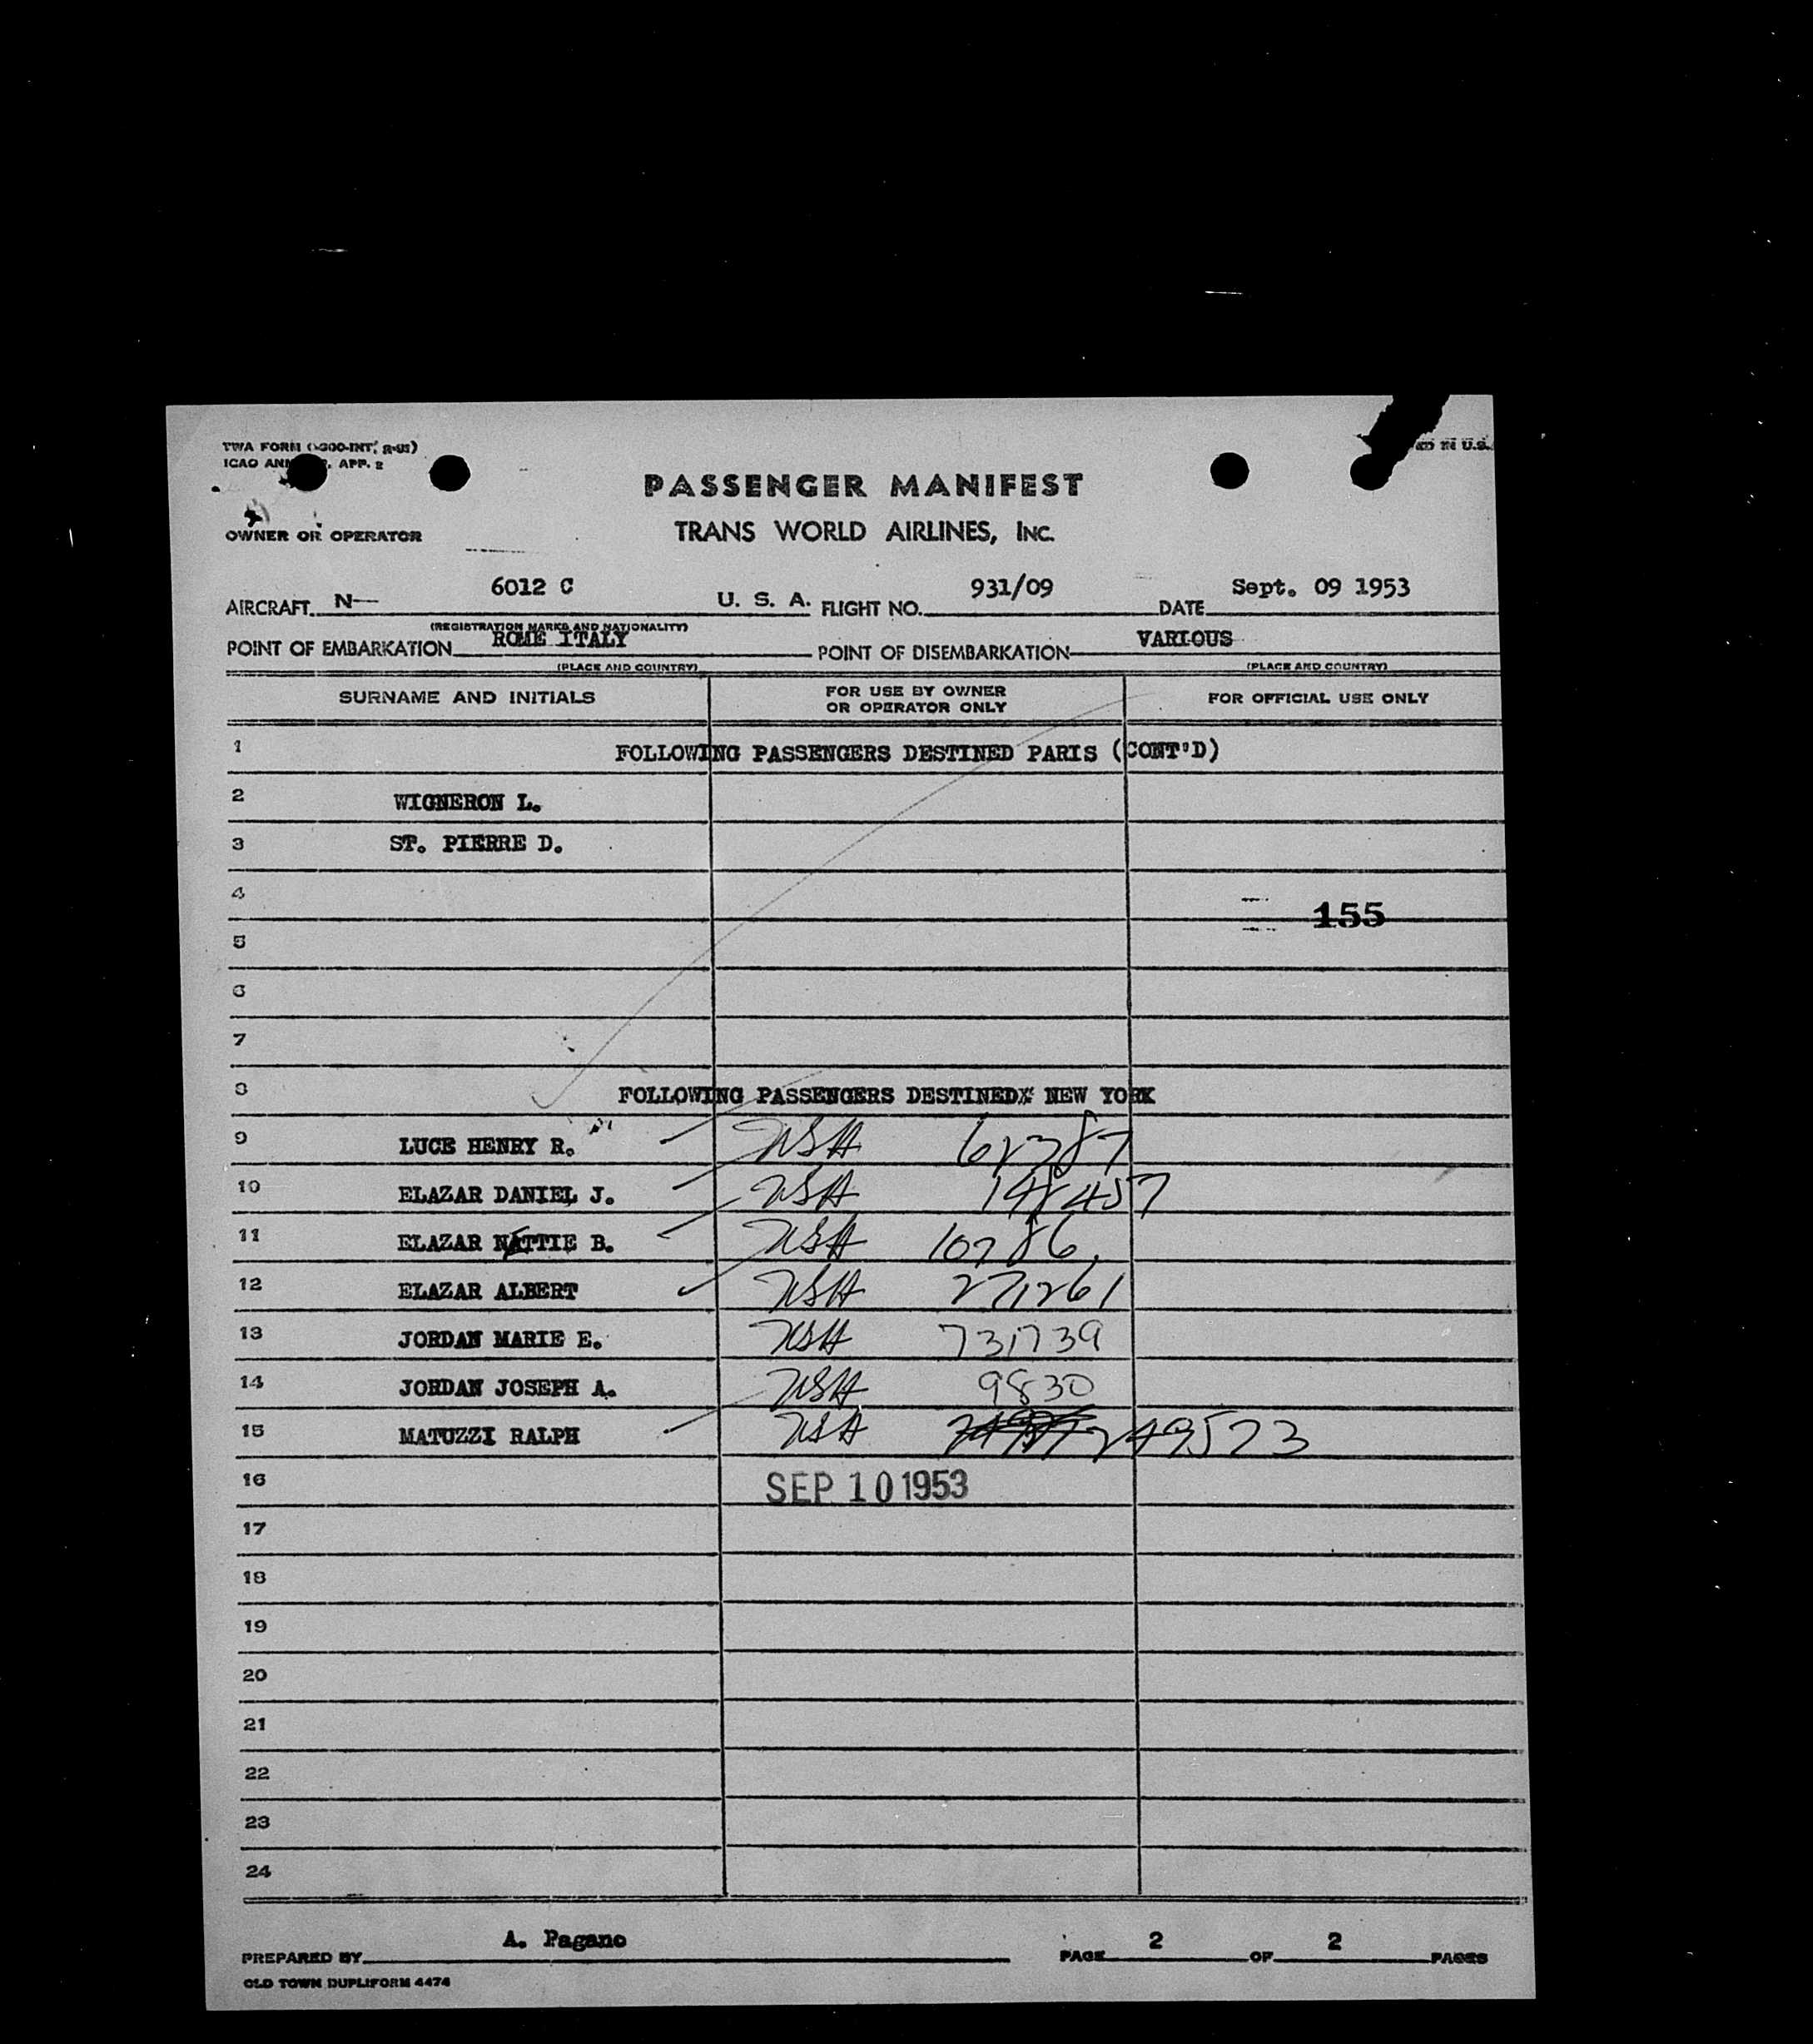 TWA FORM
ICAO APP. 2
IN U.S.
PASSENGER MANIFEST
TRANS WORLD AIRLINES, INC.
OWNER OR OPERATOR
AIRCRAFT N— 6012 C U. S. A. FLIGHT NO. 931/09 DATE Sept. 09 1953
(REGISTRATION MARKS AND NATIONALITY)
POINT OF EMBARKATION ROME ITALY POINT OF DISEMBARKATION VARIOUS
(PLACE AND COUNTRY) (PLACE AND COUNTRY)
SURNAME AND INITIALS FOR USE BY OWNER OR OPERATOR ONLY FOR OFFICIAL USE ONLY
1 FOLLOWING PASSENGERS DESTINED PARIS (CONT'D)
2 WIGNERON L.
3 ST. PIERRE D.
4 155
5
6
7
8 FOLLOWING PASSENGERS DESTINED NEW YORK
9 LUCE HENRY R. USA 62387
10 ELAZAR DANIEL J. USA 148457
11 ELAZAR NETTIE B. USA 10786
12 ELAZAR ALBERT USA 271261
13 JORDAN MARIE E. USA 731739
14 JORDAN JOSEPH A. USA 9830
15 MATUZZI RALPH USA 249573
16 SEP 10 1953
17
18
19
20
21
22
23
24
PREPARED BY A. Pagano PAGE 2 OF 2 PAGES
OLD TOWN DUPLIFORM 4474